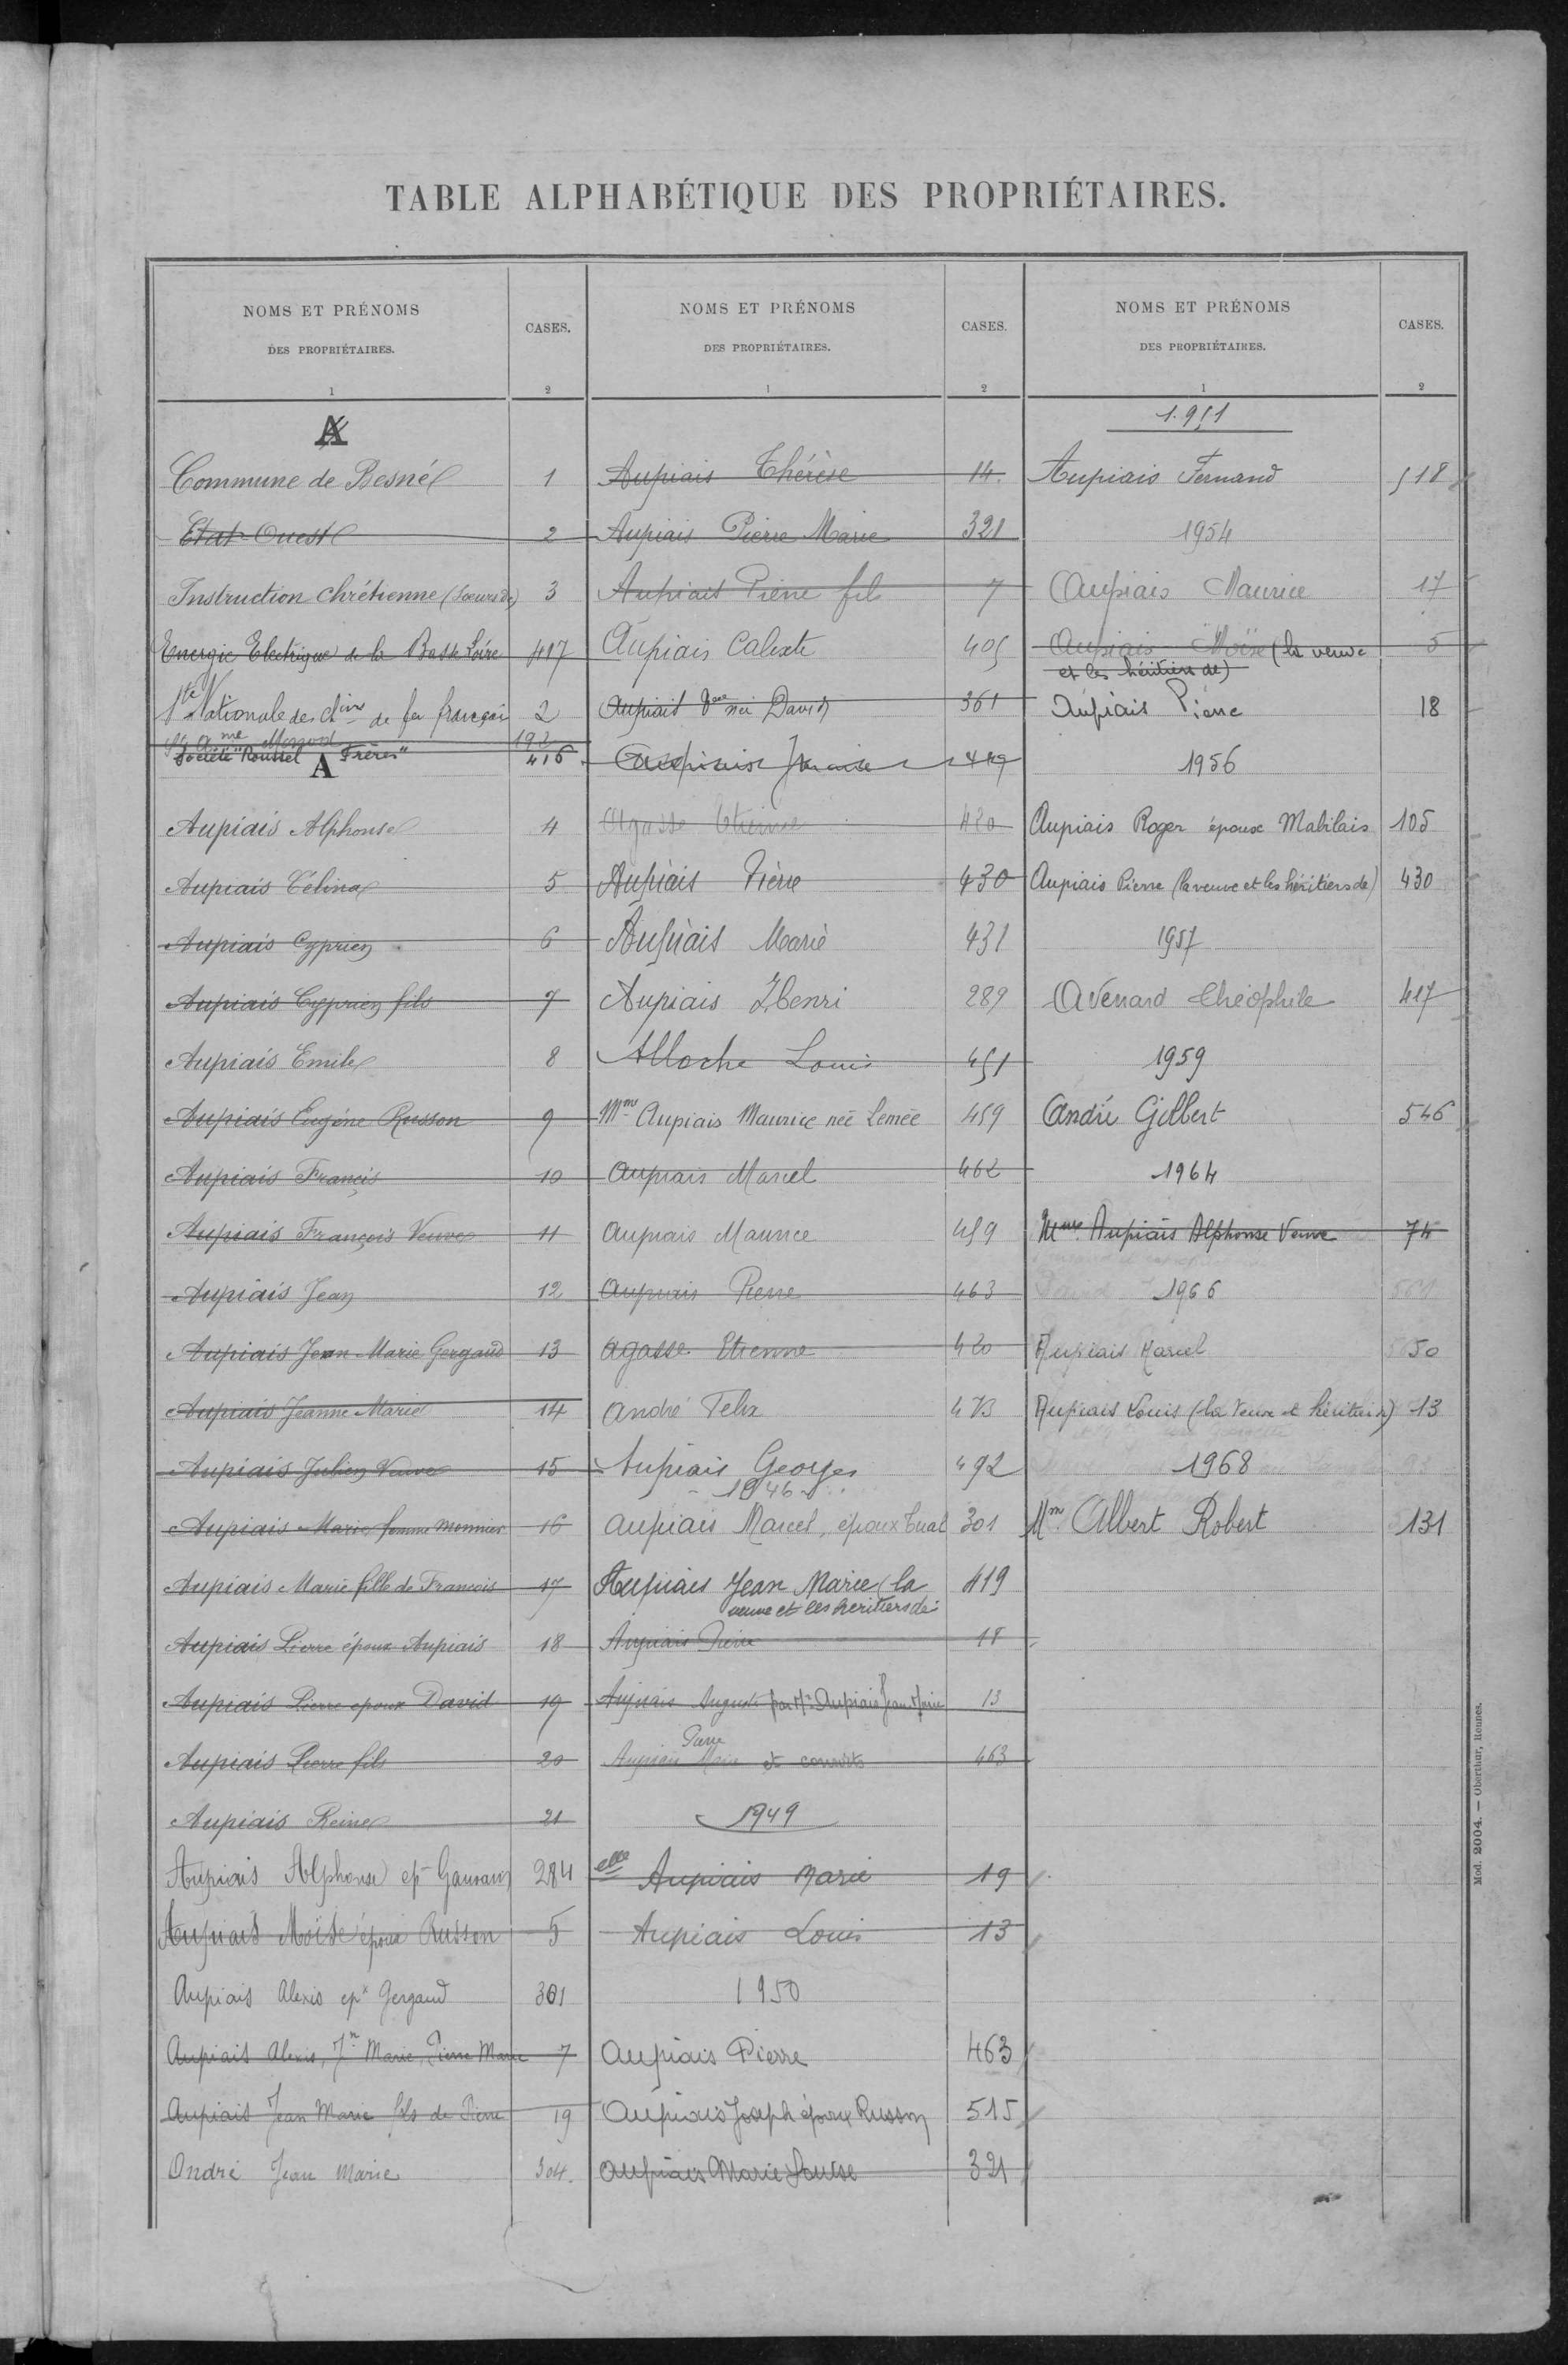 TABLE ALPHABÉTIQUE DES PROPRIÉTAIRES.
NOMS ET PRÉNOMS
DES PROPRIÉTAIRES.
CASES.
1
2
A
Commune de Besné 1
Etat-Ouest 2
Instruction chrétienne (Sœurs de) 3
Energie Electrique de la Basse Loire 417
Sté Nationale des ch ins de fer français 2
192
Société "Roussel Frères" 416
A
Aupiais Alphonse 4
Aupiais Célina 5
Aupiais Cyprien 6
Aupiais Cyprien fils 7
Aupiais Emile 8
Aupiais Eugène Russon 9
Aupiais Francis 10
Aupiais François Veuve 11
Aupiais Jean 12
Aupiais Jean-Marie Gergaud 13
Aupiais Jeanne-Marie 14
Aupiais Julien Veuve 15
Aupiais Marie femme Monnier 16
Aupiais Marie fille de François 17
Aupiais Pierre époux Aupiais 18
Aupiais Pierre époux David 19
Aupiais Pierre fils 20
Aupiais Reine 21
Aupiais Alphonse ep 284
Aupiais Moïse époux Russon 5
Aupiais Alexis epx Gergaud 301
Aupiais Alexis, Jn Marie, Pierre Marie 7
Aupiais Jean Marie fils de Pierre 19
André Jean Marie 304.
NOMS ET PRÉNOMS
DES PROPRIÉTAIRES.
CASES.
1
2
Aupiais Thérèse 14.
Aupiais Pierre Marie 321
Aupiais Pierre fils 7
Aupiais Calixte 405
Aupiais Vve née David 361
Aupiais 419
Agasse Etienne 420
Aupiais Pierre 430
Aupiais Marie 431
Aupiais Henri 289
Alloche Louis 451
Mme Aupiais Maurice née Lemée 459
Aupiais Marcel 462
Aupiais Maurice 459
Aupiais Pierre 463
Agasse Etienne 420
André Felix 473
Aupiais Georges 492
1946
Aupiais Marcel, époux Tual 301
Aupiais Jean Marie (la 419
veuve et les héritiers de
Aupiais Pierre 18
Aupiais Auguste par Mr Aupiais Jean Marie 13
Pierre
Aupiais Marie et consorts 463
1949
elle Aupiais Marie 19
Aupiais Louis 13
1950
Aupiais Pierre 463
Aupiais Joseph époux Russon 515
Aupiais Marie Louise 321
NOMS ET PRÉNOMS
DES PROPRIÉTAIRES.
CASES.
1
2
1951
Aupiais Fernand 518
1954
Aupiais Maurice 17
Aupiais Moïse (la veuve 5
et les héritiers de)
Aupiais Pierre 18
1956
Aupiais Roger époux Mabilais 105
Aupiais Pierre (la veuve et les héritiers de) 430
1957
Avenard Théophile 417
1959
André Gilbert 546
1964
Mme Aupiais Alphonse Veuve 74
1966
Aupiais Marcel 50
Aupiais Louis (la Veuve et héritiers) 13
1968
Mr Albert Robert 131
Mod. 2004. — Oberthur, Rennes.